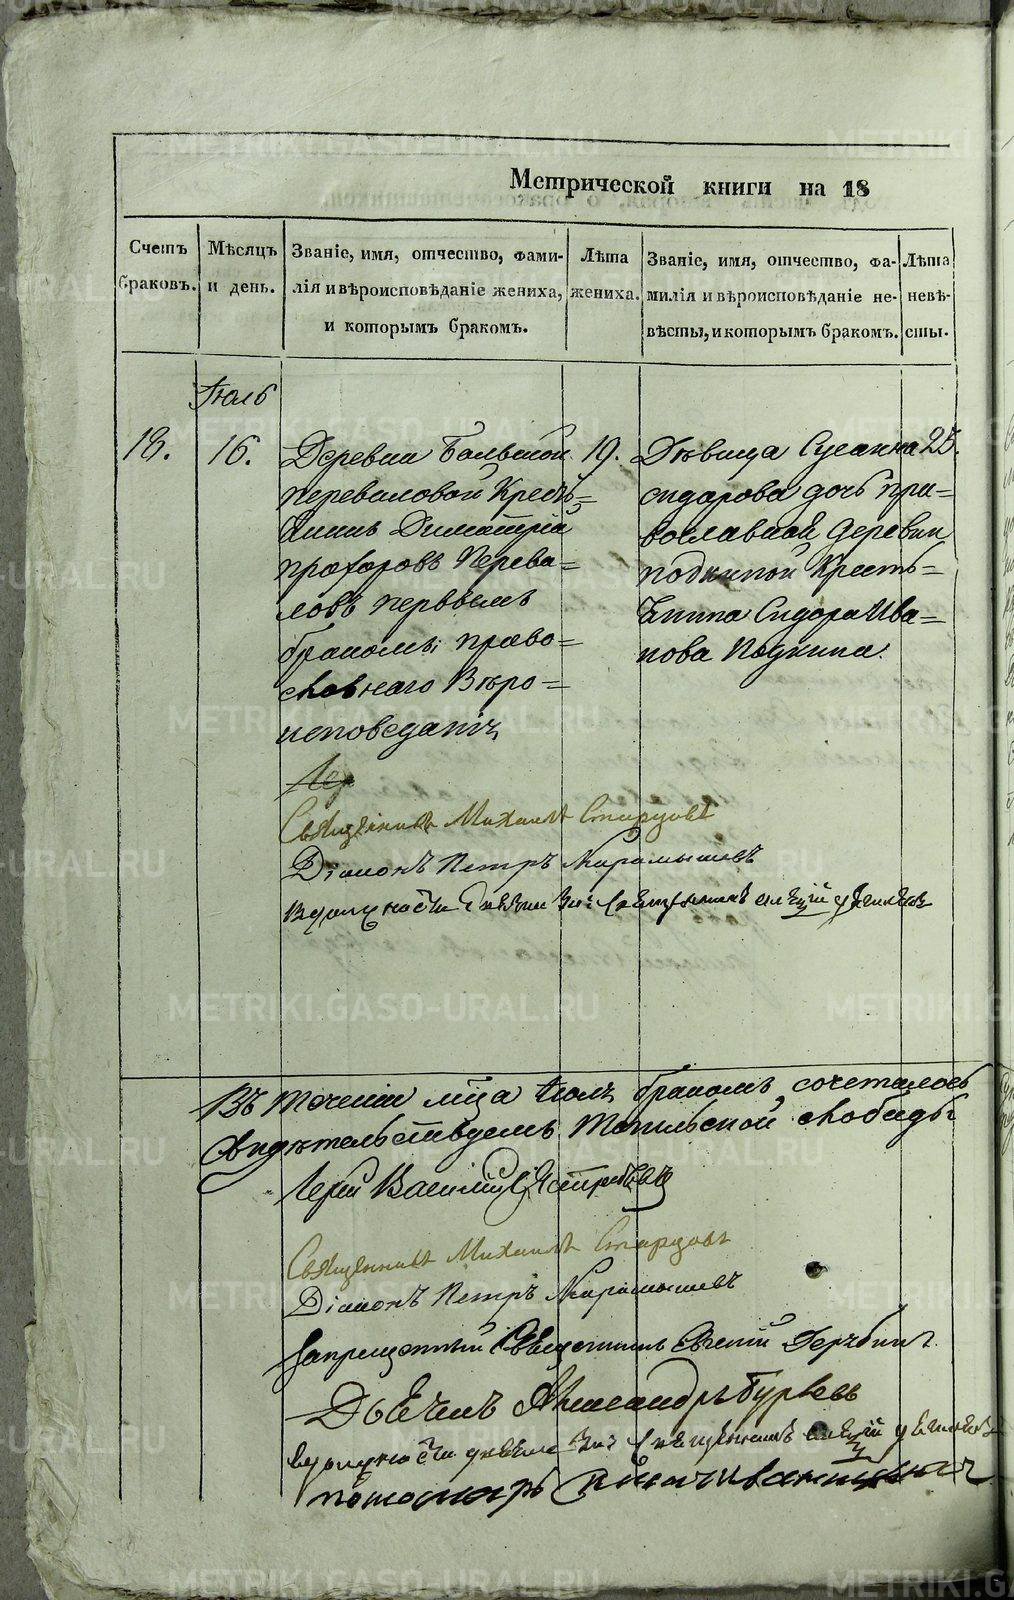 Метрической книги на 18
Счетъ браковъ.
Мѣсяцъ и день.
Званіе, имя, отчество, фами-
лія и вѣроисповѣданіе жениха,
и которымъ бракомъ.
Лѣта жениха.
Званіе, имя, отчество, фа-
милія и вѣроисповѣданіе не-
вѣсты, и которымъ бракомъ.
Лѣта невѣ-
сты.
Іюль
18.
16.
Деревни Большой
Переваловой Кресть=
янинъ Димитрій
Прохоровъ Перева=
ловъ первымъ
бракомъ; право=
славнаго Вѣро=
исповеданія
19.
Дѣвица Сусанна
Сидорова дочь пра=
вославной деревни
Подкиной Кресть=
янина Сидора Ива=
нова Подкина.
25.
Іер
Священникъ Михаилъ Старцовъ
Діаконъ Петръ Карамышевъ
Въ теченіи мца Іюля бракомъ сочеталось
Свидѣтельствуемъ слободы
Іерей Василій
Священникъ Михаилъ Старцовъ
Діаконъ Петръ Карамышевъ
Запрещенный Священникъ
Дьячекъ Александръ Гурьевъ
пономарь
METRIKI.GASO-URAL.RU